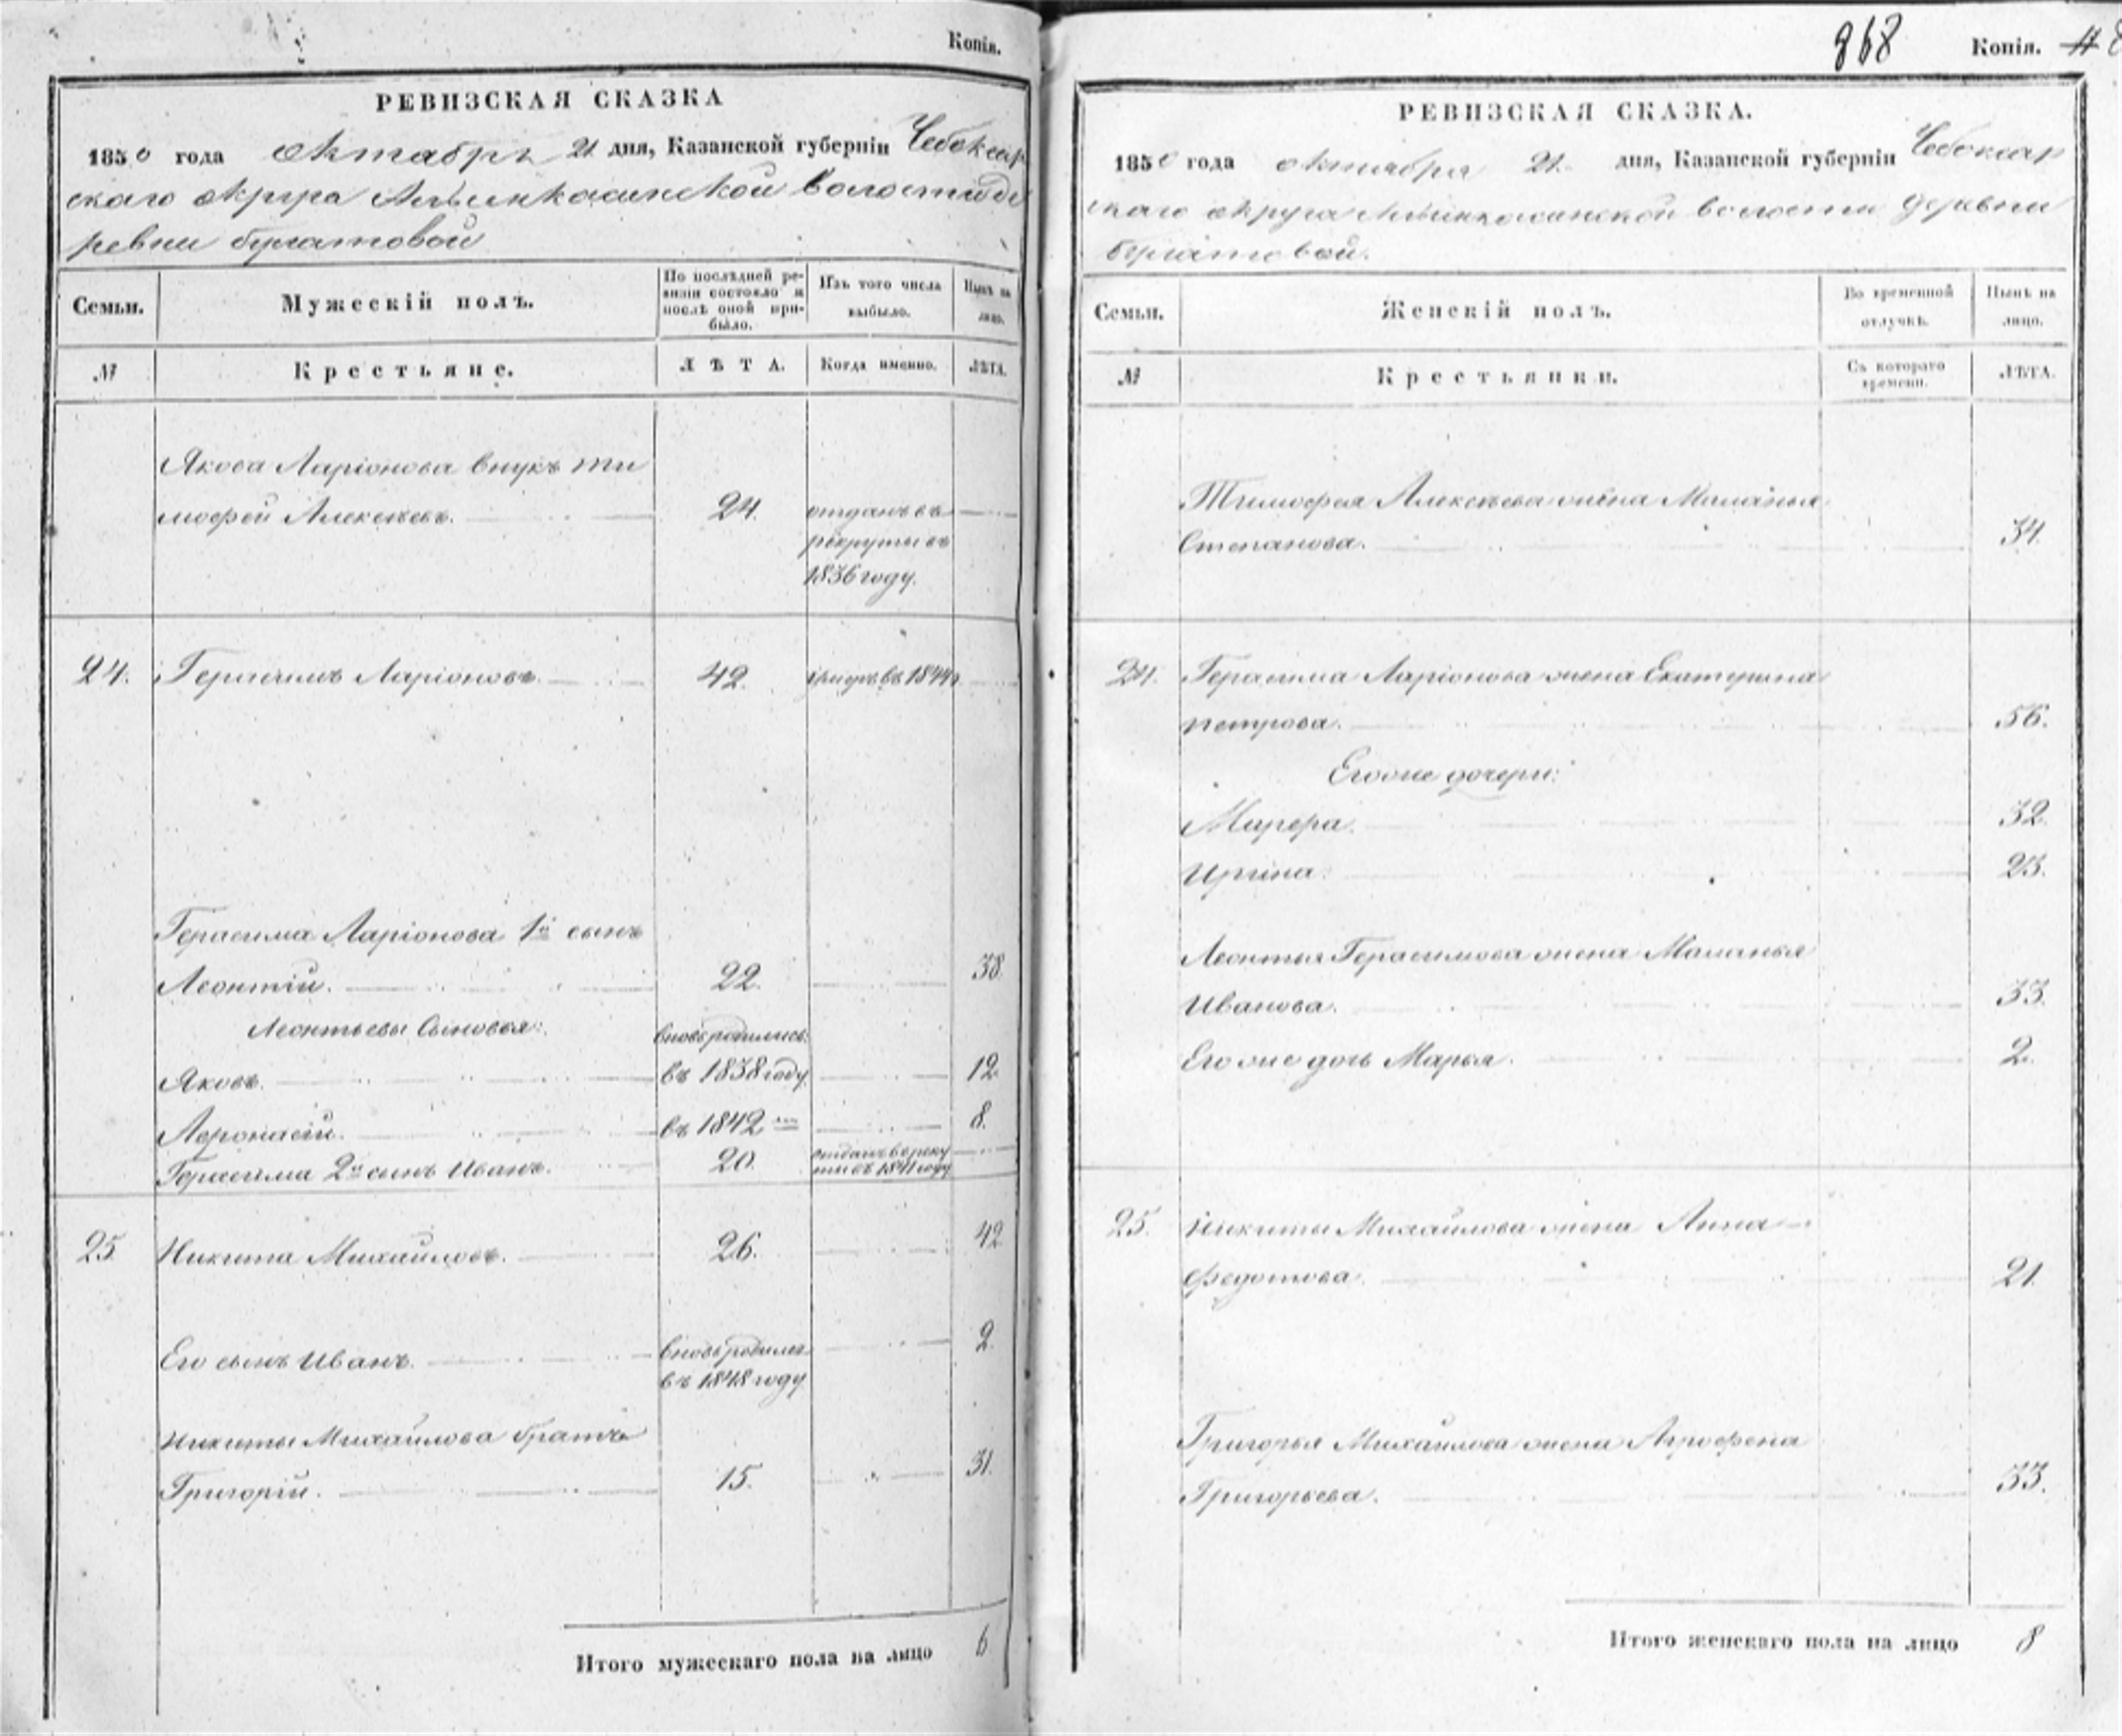 Копія.
РЕВИЗСКАЯ СКАЗКА
1850 года октября 21 дня, Казанской губерніи Чебоксар
скаго округа волости де
ревни булатовой
Семьи.
Мужескій полъ.
По послѣдней ре-
визіи состояло и
послѣ оной при-
было.
Изъ того числа
выбыло.
Нынѣ на
лицо.
№
Крестьяне.
ЛѢТА.
Когда именно.
ЛѢТА.
Якова Ларіонова внукъ ти
мофей Алексѣевъ. 24. отданъ въ
рекруты въ
1836 году.
24. Герасимъ Ларіоновъ. 42. въ 1844
Герасима Ларіонова 1й сынъ
Леонтій. 22. 38.
Леонтьевы сыновья: вновь родились:
Яковъ. въ 1838 году 12.
въ 1842 8.
Герасима 2й сынъ Иванъ. 20. отданъ в рекру
ты въ 1841 году
25 Никита Михайловъ. 26. 42
Его сынъ Иванъ. вновь родился 2.
въ 1848 году
Никиты Михайлова братъ
Григорій. 15. 31.
Итого мужескаго пола на лицо 6
868 Копія.
РЕВИЗСКАЯ СКАЗКА.
1850 года октября 21. дня, Казанской губерніи Чебоксар
скаго округа волости деревни
булатовой.
Семьи.
Женскій полъ.
Во временной
отлучкѣ.
Нынѣ на
лицо.
№
Крестьянки.
Съ котораго
времени.
ЛѢТА.
Тимофея Алексѣева жена Маланья
Степанова. 34.
24. Герасима Ларіонова жена Екатерина
петрова. 56.
Его же дочери:
32.
Ирина. 23.
Леонтья Герасимова жена Маланья
Иванова. 33.
Его же дочь Марья. 2.
25. Никиты Михайлова жена Анна
федотова. 21.
Григорья Михайлова жена Агрофена
Григорьева. 33.
Итого женскаго пола на лицо 8